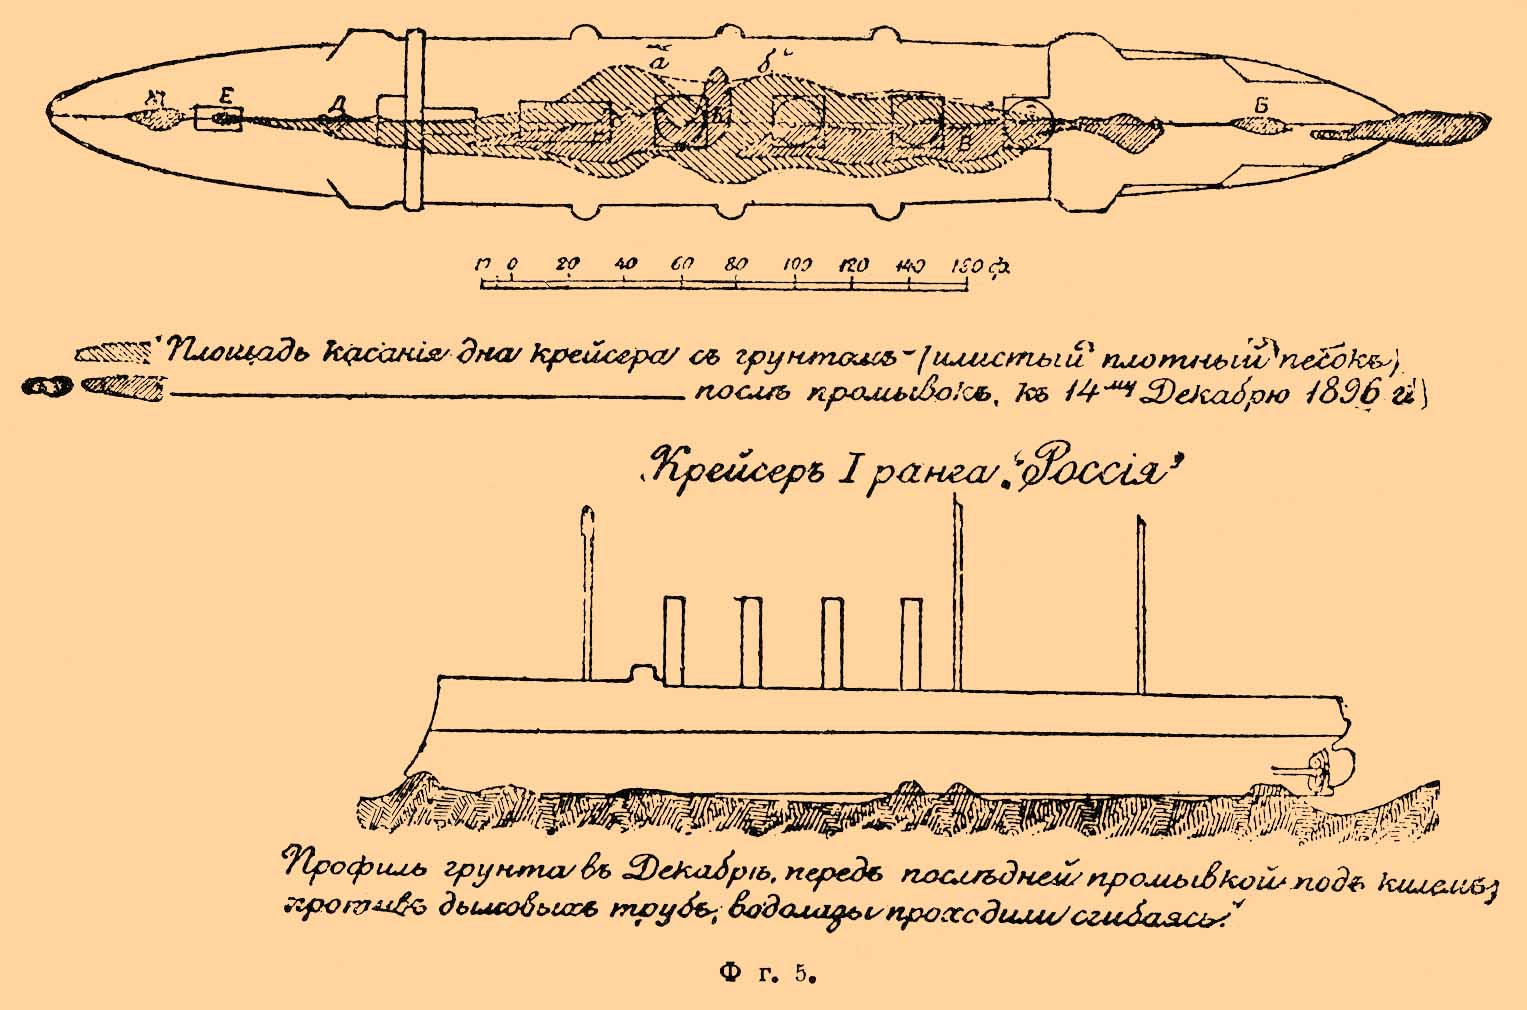 а б
М Е Д Б
В
10 0 20 40 60 80 100 120 140 160 ф.
Площадь касанія дна крейсера съ грунтамъ - (илистый плотный песокъ)
послѣ промывокъ, къ 14му Декабрю 1896 г.)
Крейсеръ I ранга „Россія”
Профиль грунта въ Декабрѣ, передъ послѣдней промывкой подъ килемъ,
противъ дымовыхъ трубъ, водолазы проходили сгибаясь.
Ф г. 5.